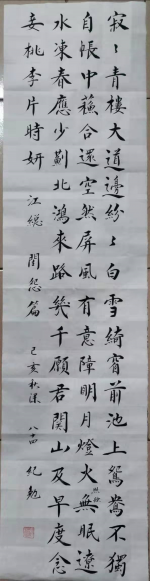 寂〻青樓大道邊紛〻白雪綺窗前池上鴛鴦不獨
自帳中蘓合還空然屏風有意障明月燈火無眠遼
水凍春應少薊北鴻來路幾千願君関山及早度念
妾桃李片時妍 江總 閨怨篇 己亥秋深 八四 化勉